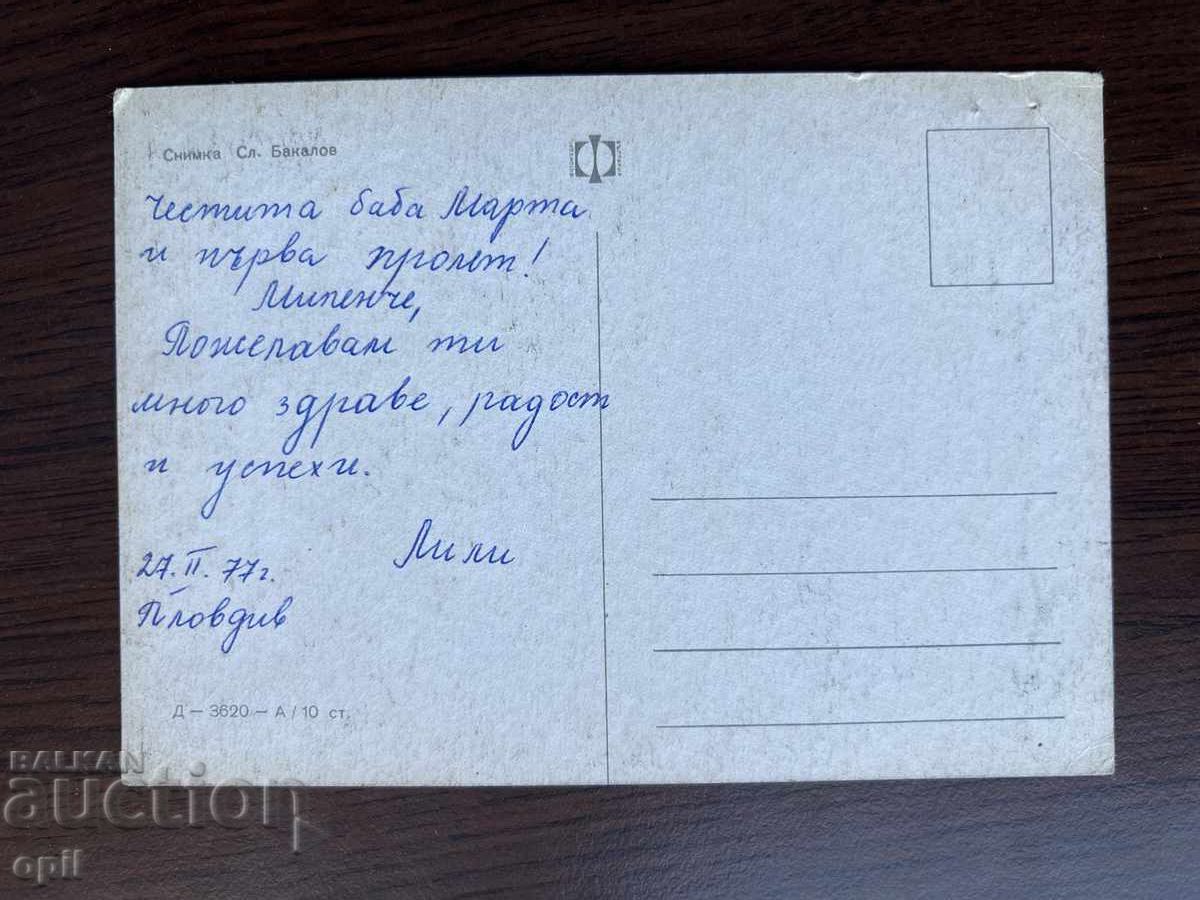 Снимка Сл. Бакалов
Честита баба Марта
и първа пролет!
Миленче,
Пожелавам ти
много здраве, радост
и успехи.
Лили
27.II.77г.
Пловдив
Д — 3620 — А / 10 ст.
BALKAN
auction
opil